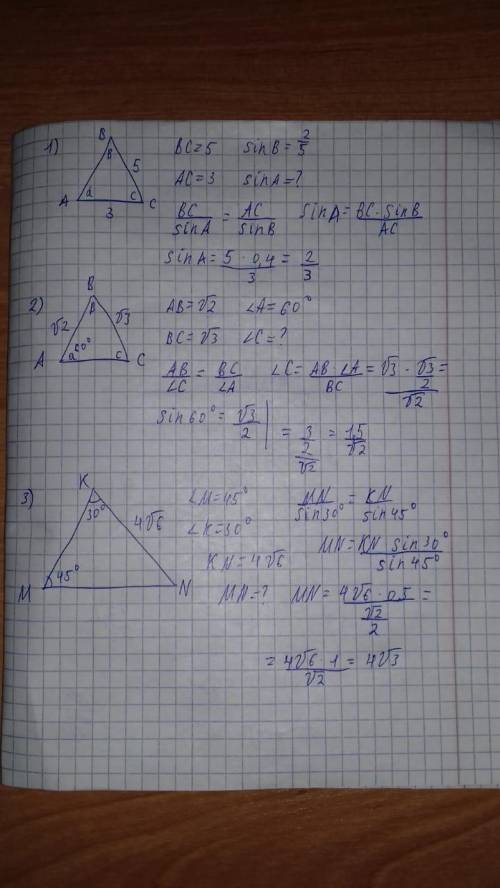 1) B
B 5
A a c C
3
BC=5 sinB=2/5
AC=3 sinA=?
BC/sinA = AC/sinB sinA= BC·sinB/AC
sinA= 5·0,4/3 = 2/3
2) B
√2 B √3
A a 60° c C
AB=√2 ∠A=60°
BC=√3 ∠C=?
AB/∠C = BC/∠A ∠C= AB·∠A/BC = √3·√3/2/√2 =
sin60°= √3/2 = 3/2/√2 = 1,5/√2
3) K
30° 4√6
M 45° N
∠M=45° MN/sin30° = KN/sin45°
∠K=30°
KN=4√6 MN= KN sin30°/sin45°
MN=? MN= 4√6·0,5/√2/2 =
= 4√6·1/√2 = 4√3